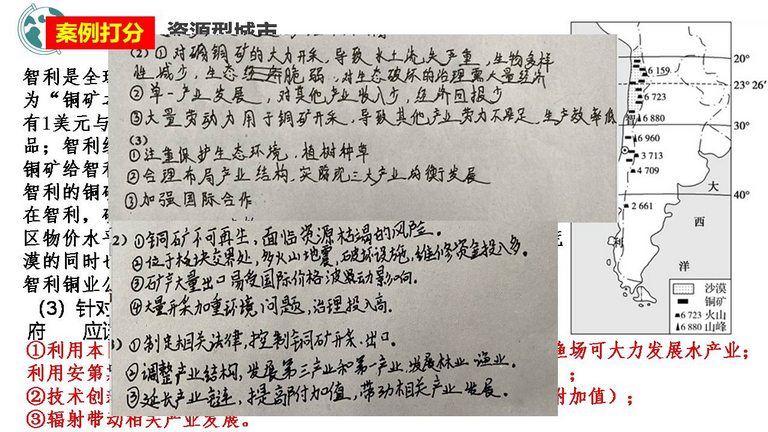 案例打分 资源型城市
(2)①对硝铜矿的大力开采,导致水土流失严重,生物多样
性减少,生态脆弱,对生态破坏的治理需大量经济
②单一产业发展,对其他产业收入少,经济回报少
③大量劳动力用于铜矿开采,导致其他产业劳力不足,生产效率低
(3)
①注重保护生态环境,植树种草
②合理布局产业结构,实现三大产业均衡发展
③加强国际合作
2)①铜矿不可再生,面临资源枯竭的风险。
②位于板块交界处,多火山地震,破坏设施,维修资金投入多。
③矿产大量出口易受国际价格波动影响。
④大量开采加重环境问题,治理投入高。
)①制定相关法律,控制铜矿开采、出口。
②调整产业结构,发展第三产业和第一产业,发展林业、渔业。
③延长产业链,提高附加值,带动相关产业发展。
智利是全
为“铜矿
有1美元与
品;智利
铜矿给智
智利的铜矿
在智利,
区物价水平
漠的同时
智利铜业
(3)针对
府 应
①利用本 渔场可大力发展水产业;
利用安第 ;
②技术创 附加值);
③辐射带动相关产业发展。
20°
23°26′
30°
40°
6 159
6 723
6 880
6 960
3 713
4 709
2 661
智
利
大
西
洋
沙漠
铜矿
6 723 火山
6 880 山峰